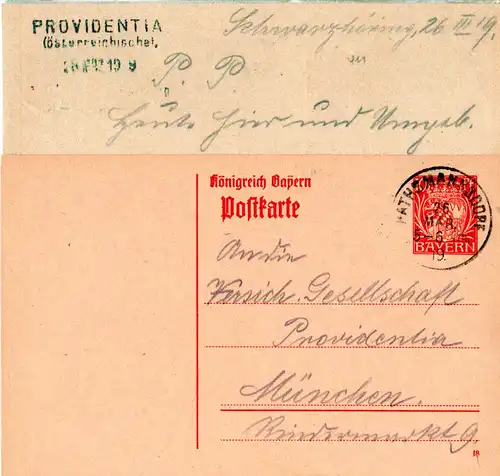 PROVIDENTIA
(österreichische),
Schwarzhöring, 26 III 19.
P. P.
Heute hier und Umgeb.
Königreich Bayern
Postkarte
26
MAR
5-6
19
BAYERN
An die
Versich. Gesellschaft
Providentia
München.
Rindermarkt 9
18